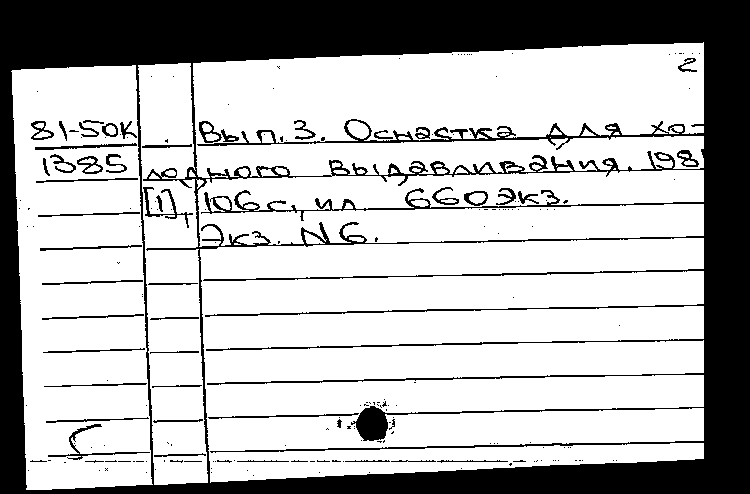 2
81-50К Вып. 3. Оснастка для хо-
1385 лодного выдавливания. 198
[1], 106 с, ил 660 экз.
Экз. N 6.